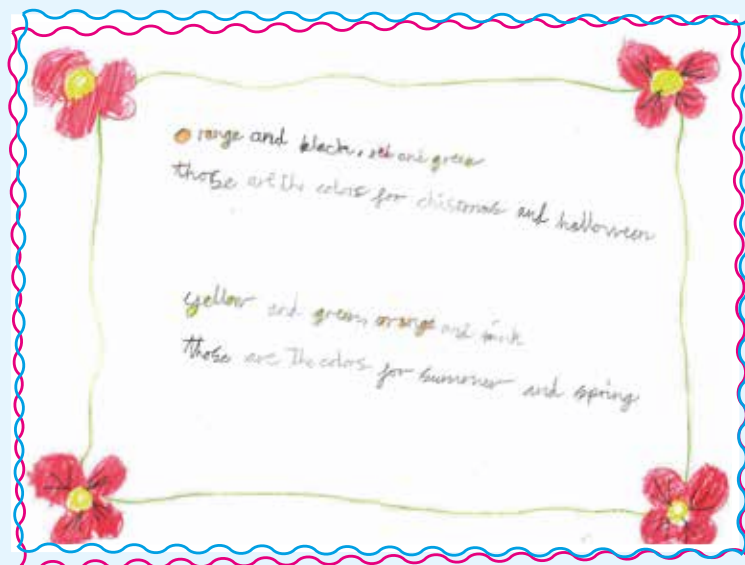 orange and black, red and green
those are the colors for chistmas and halloween
yellow and green, orange and pink
those are The colors for summer and spring